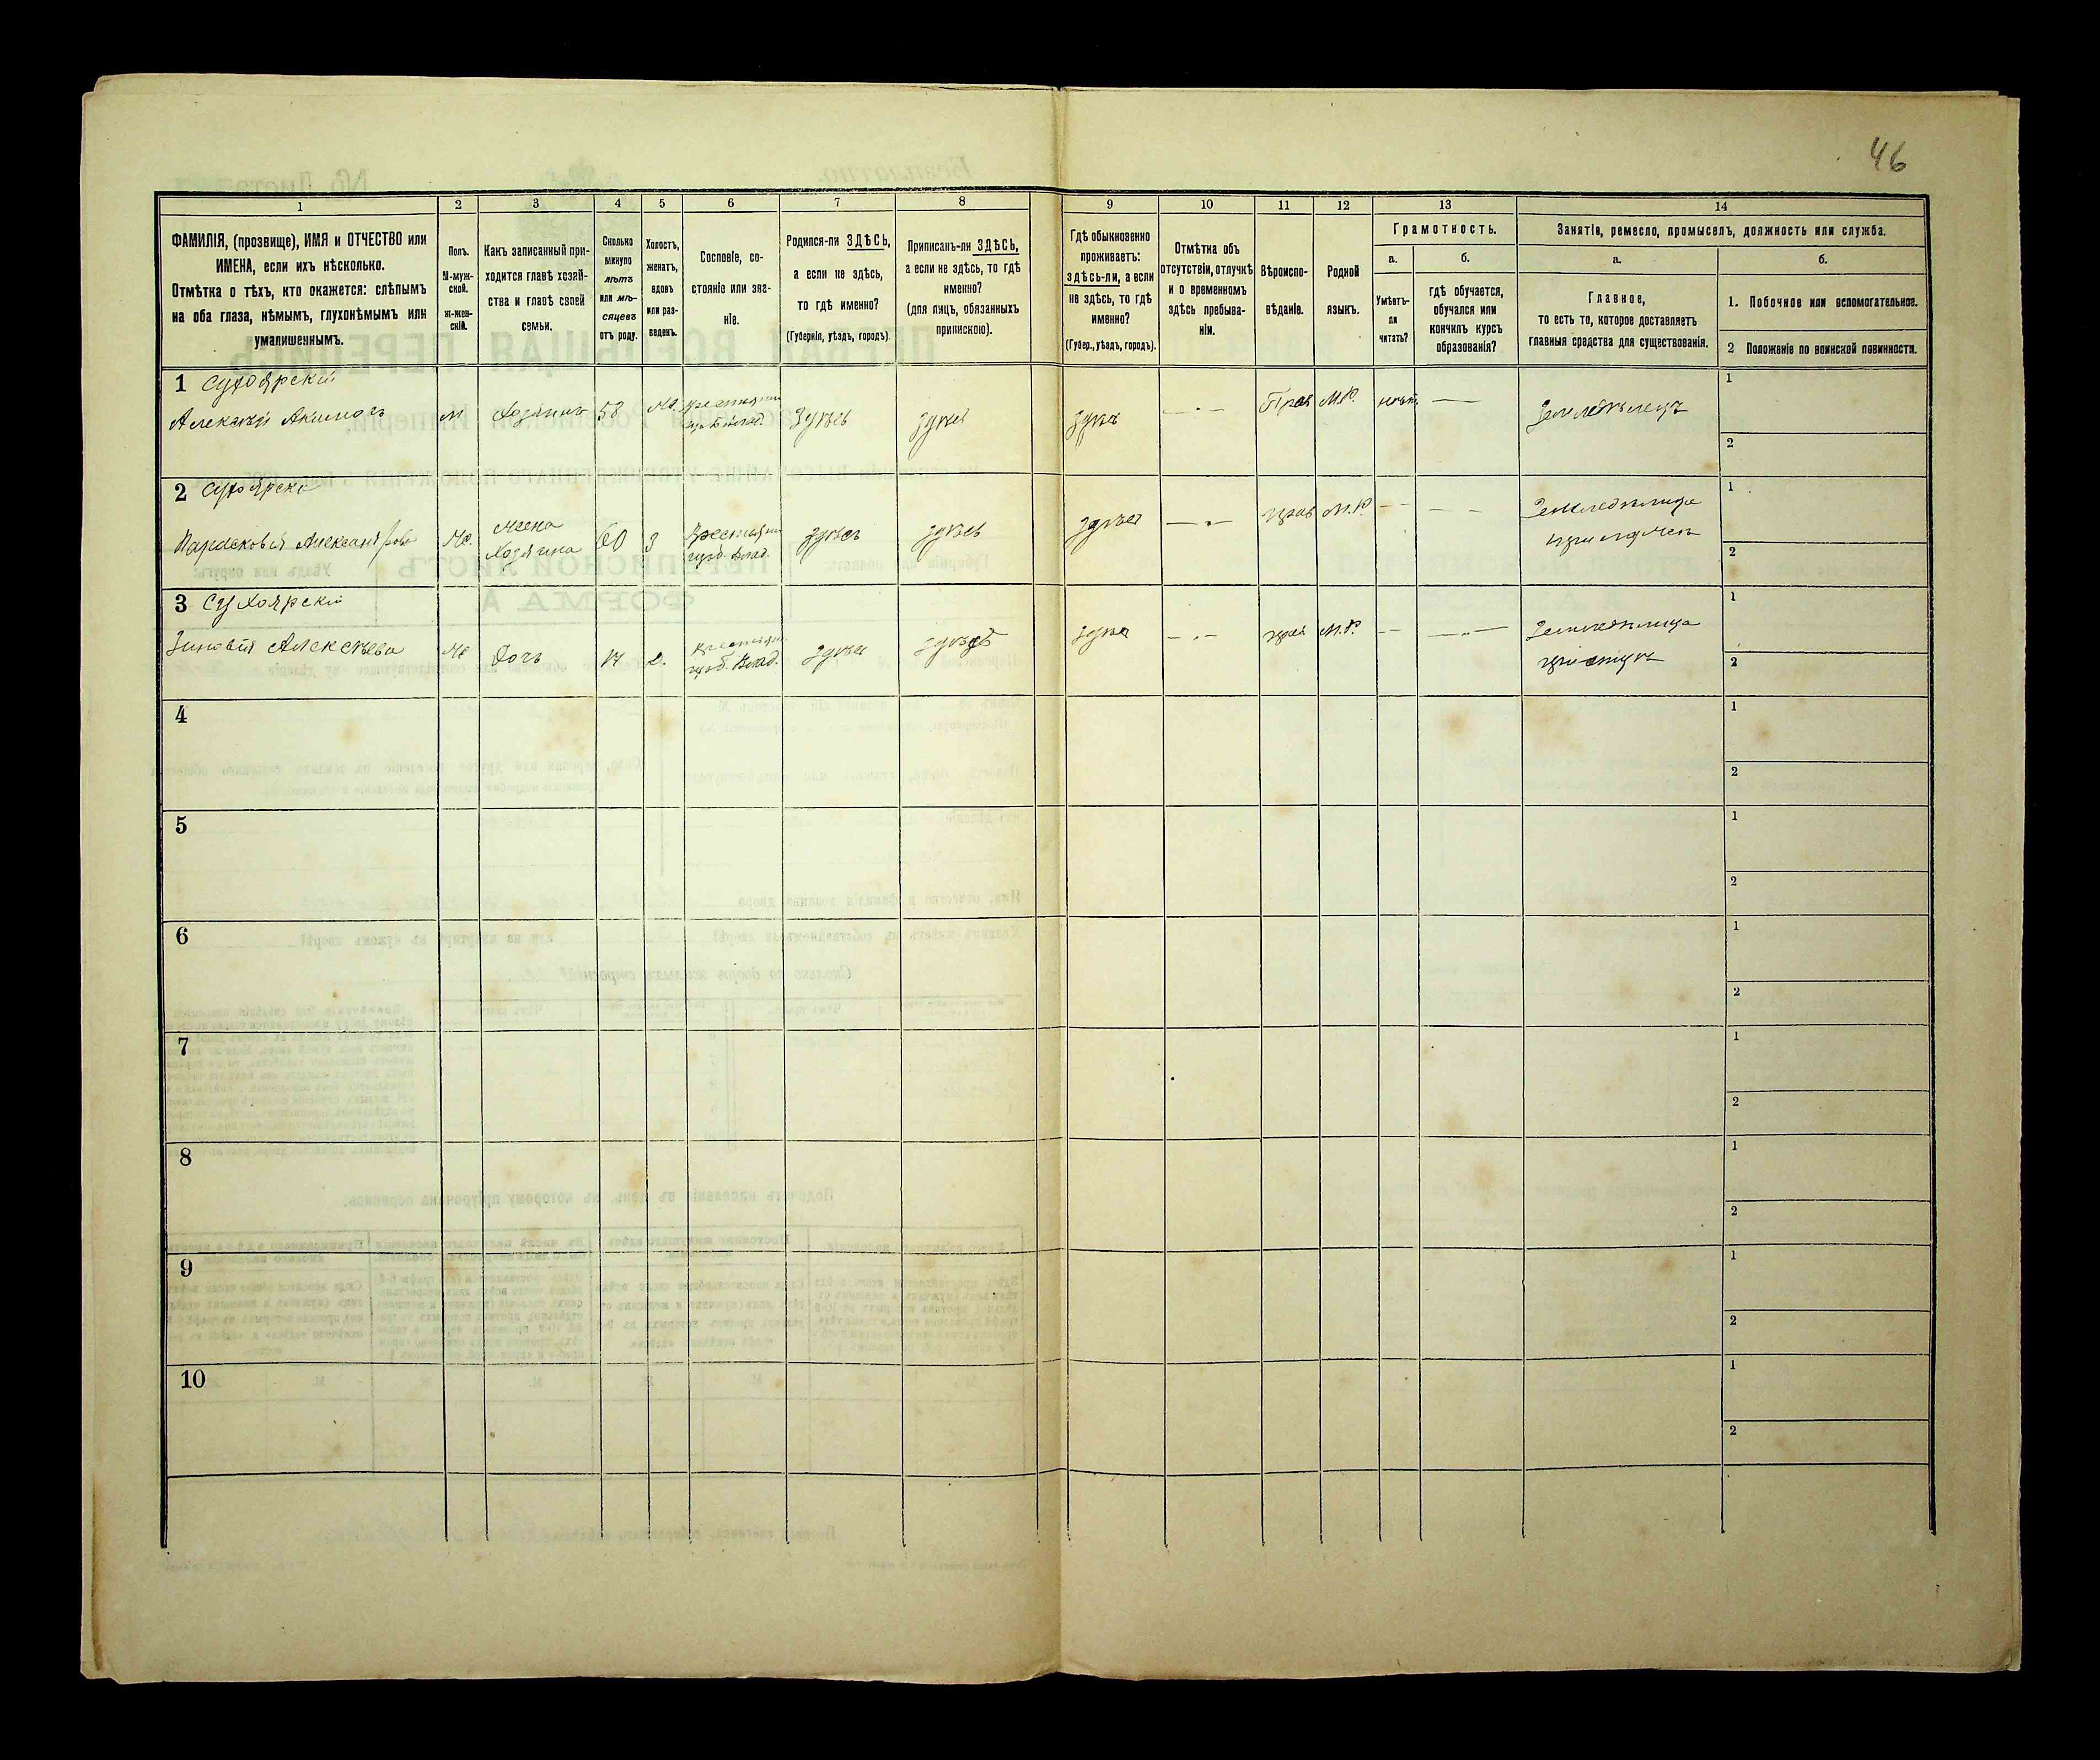 46
1
2
3
4
5
6
7
8
9
10
11
12
13
14
ФАМИЛІЯ, (прозвище), ИМЯ и ОТЧЕСТВО или
ИМЕНА, если ихъ нѣсколько.
Отмѣтка о тѣхъ, кто окажется: слѣпымъ
на оба глаза, нѣмымъ, глухонѣмымъ или
умалишеннымъ.
Полъ.
М-муж-
ской.
Ж-жен-
скій.
Какъ записанный при-
ходится главѣ хозяй-
ства и главѣ своей
семьи.
Сколько
минуло
лѣтъ
или мѣ-
сяцевъ
отъ роду.
Холостъ,
женатъ,
вдовъ
или раз-
веденъ.
Сословіе, со-
стояніе или зва-
ніе.
Родился-ли ЗДѢСЬ,
а если не здѣсь,
то гдѣ именно?
(Губернія, уѣздъ, городъ).
Приписанъ-ли ЗДѢСЬ,
а если не здѣсь, то гдѣ
именно?
(для лицъ, обязанныхъ
припискою).
Гдѣ обыкновенно
проживаетъ:
здѣсь-ли, а если
не здѣсь, то гдѣ
именно?
(Губер., уѣздъ, городъ).
Отмѣтка объ
отсутствіи, отлучкѣ
и о временномъ
здѣсь пребыва-
ніи.
Вѣроиспо-
вѣданіе.
Родной
языкъ.
Грамотность.
а.
Умѣетъ-
ли
читать?
б.
гдѣ обучается,
обучался или
кончилъ курсъ
образованія?
Занятіе, ремесло, промыселъ, должность или служба.
а.
Главное,
то есть то, которое доставляетъ
главныя средства для существованія.
б.
1. Побочное или вспомогательное.
2 Положеніе по воинской повинности.
1 Сухоярскій
Алексѣй Акимовъ
М
Хозяинъ
58
Ж.
Крестьянинъ
Здѣсь
здѣсь
здѣсь
— " —
Прав
М.Р.
нѣтъ
—
Земледѣлецъ
1
2
2 Сухоярска
Парасковія Александрова
Ж.
жена
Хозяина
60
З
здѣсь
здѣсь
здѣсь
— " —
прав
М.Р.
— —
— —
Земледѣлица
при мужѣ
1
2
3 Сухоярскій
Зиновія Алексѣева
Ж
дочь
17
д.
здѣсь
здѣсь
здѣсь
— " —
прав
М.Р.
—
— " —
Земледѣлица
при отцѣ
1
2
4
1
2
5
1
2
6
1
2
7
1
2
8
1
2
9
1
2
10
1
2